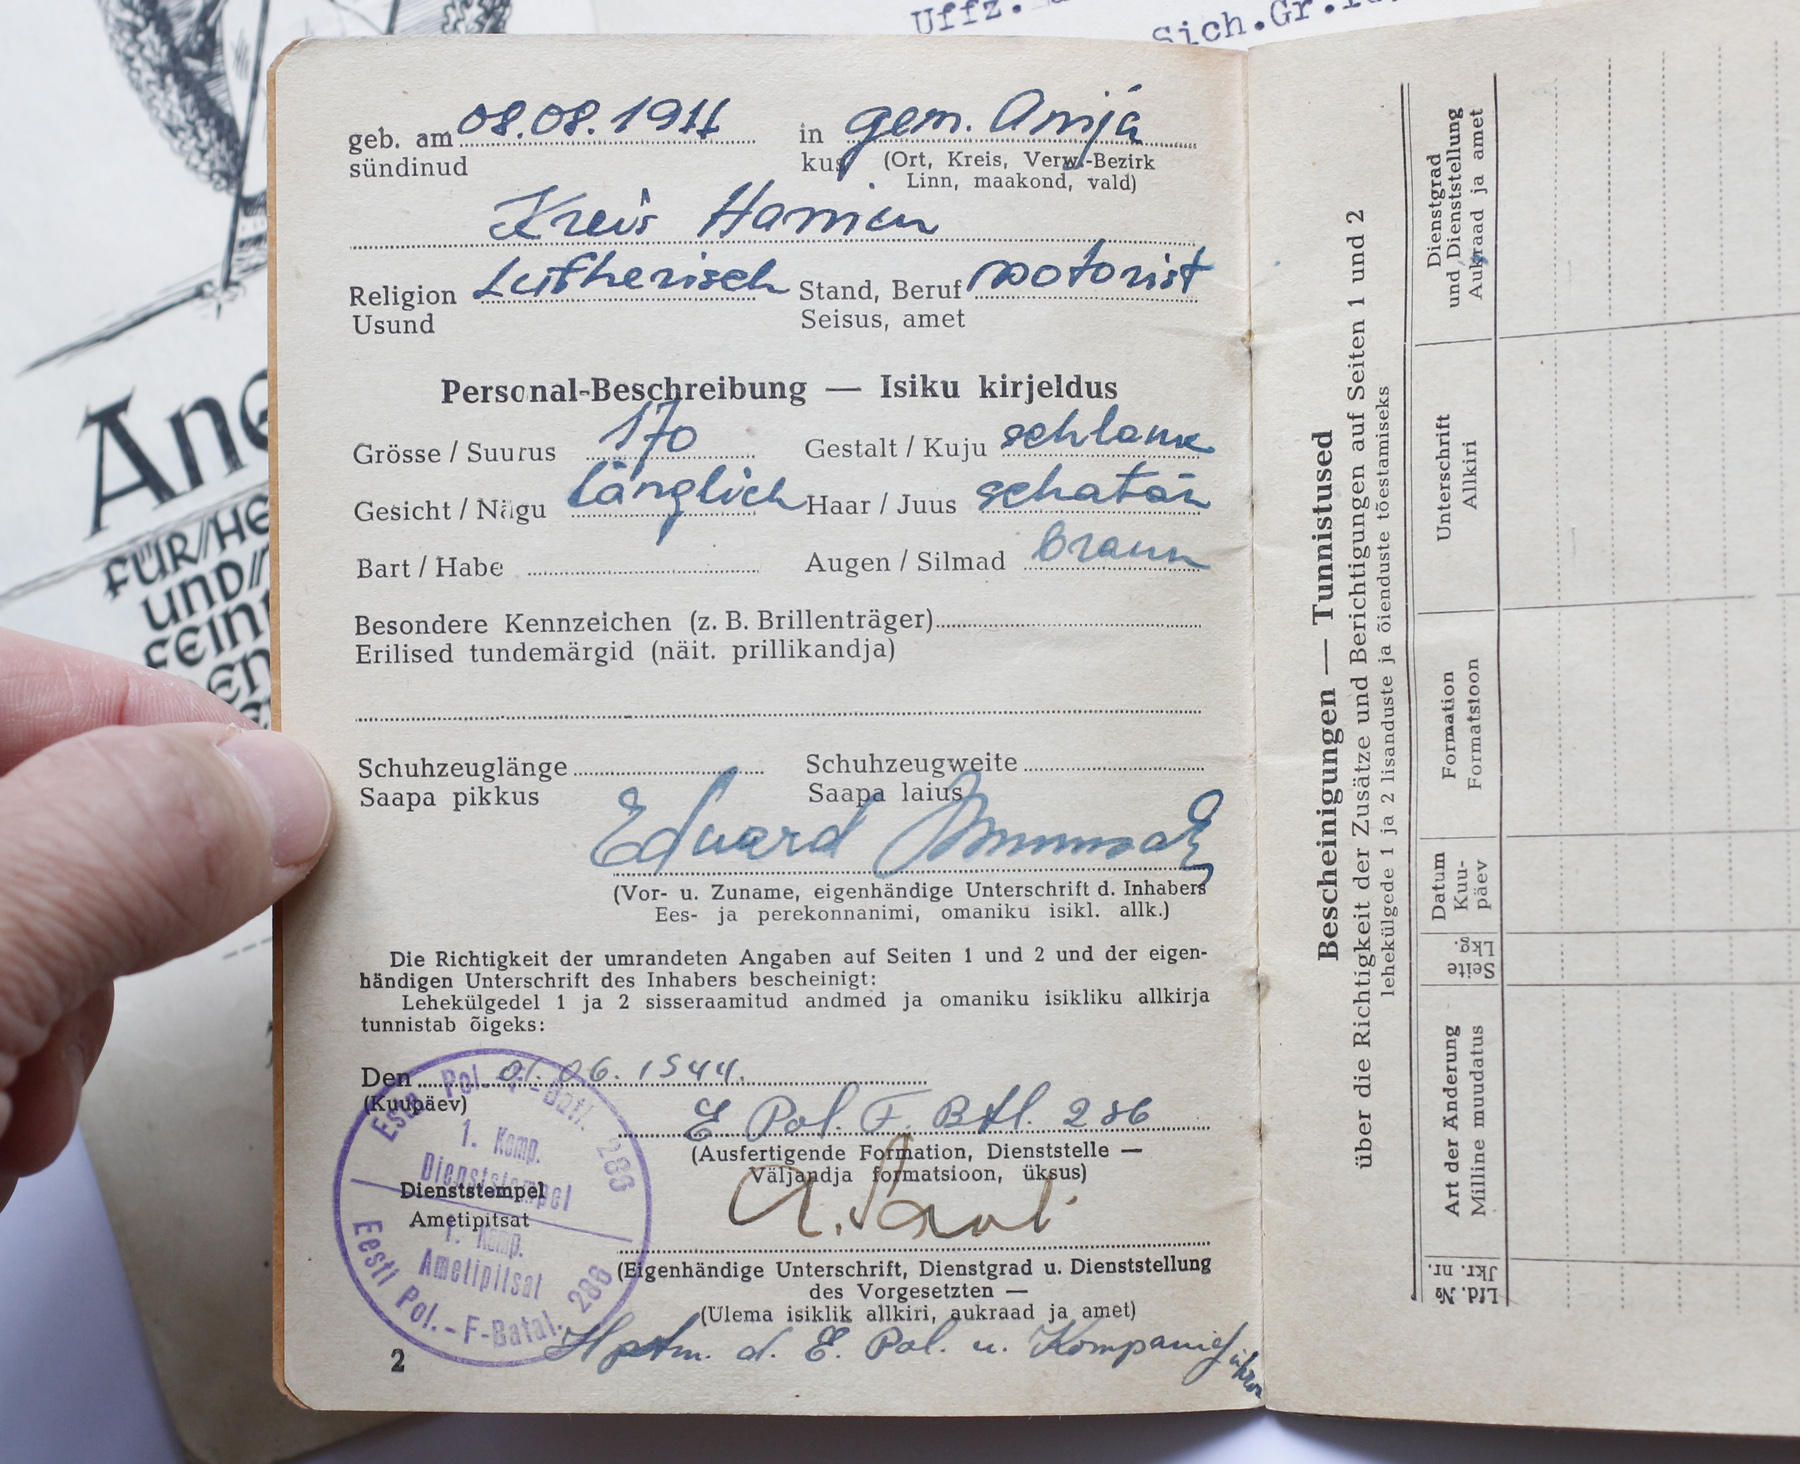 Uffz.
Sich.Gr.
Ane
FÜR/HE
UND//
FEIN
EN
geb. am 08.08.1911 in gem. Anija
sündinud kus (Ort, Kreis, Verw.-Bezirk
Linn, maakond, vald)
Kreis Harrien
Religion Lutherisch Stand, Beruf Motorist
Usund Seisus, amet
Personal-Beschreibung — Isiku kirjeldus
Grösse / Suurus 170 Gestalt / Kuju schlank
Gesicht / Nägu länglich Haar / Juus schatän
Bart / Habe Augen / Silmad braun
Besondere Kennzeichen (z. B. Brillenträger)
Erilised tundemärgid (näit. prillikandja)
Schuhzeuglänge Schuhzeugweite
Saapa pikkus Saapa laius
Eduard
(Vor- u. Zuname, eigenhändige Unterschrift d. Inhabers
Ees- ja perekonnanimi, omaniku isikl. allk.)
Die Richtigkeit der umrandeten Angaben auf Seiten 1 und 2 und der eigen-
händigen Unterschrift des Inhabers bescheinigt:
Lehekülgedel 1 ja 2 sisseraamitud andmed ja omaniku isikliku allkirja
tunnistab õigeks:
Den 01.06.1944.
(Kuupäev)
E Pol. F. Btl. 286
(Ausfertigende Formation, Dienststelle —
Väljandja formatsioon, üksus)
Dienststempel
Ametipitsat
Estn. Pol.-F-Batl. 286
1. Komp.
Dienststempel
1. Komp.
Ametipitsat
Eesti Pol.-F-Batal. 286
(Eigenhändige Unterschrift, Dienstgrad u. Dienststellung
des Vorgesetzten —
(Ülema isiklik allkiri, aukraad ja amet)
Hptm. d. E. Pol. u. Kompanieführer
2
Bescheinigungen — Tunnistused
über die Richtigkeit der Zusätze und Berichtigungen auf Seiten 1 und 2
lehekülgede 1 ja 2 lisanduste ja õienduste tõestamiseks
Lfd. №
Jkr. nr.
Art der Änderung
Milline muudatus
Seite
Lkg.
Datum
Kuu-
päev
Formation
Formatsioon
Unterschrift
Allkiri
Dienstgrad
und Dienststellung
Aukraad ja amet